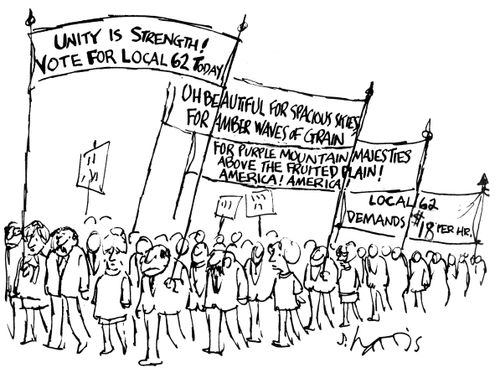 UNITY IS STRENGTH!
VOTE FOR LOCAL 62 TODAY
OH BEAUTIFUL FOR SPACIOUS SKIES,
FOR AMBER WAVES OF GRAIN
FOR PURPLE MOUNTAIN MAJESTIES
ABOVE THE FRUITED PLAIN!
AMERICA! AMERICA!
LOCAL 62
DEMANDS $18 PER HR.
S. Harris